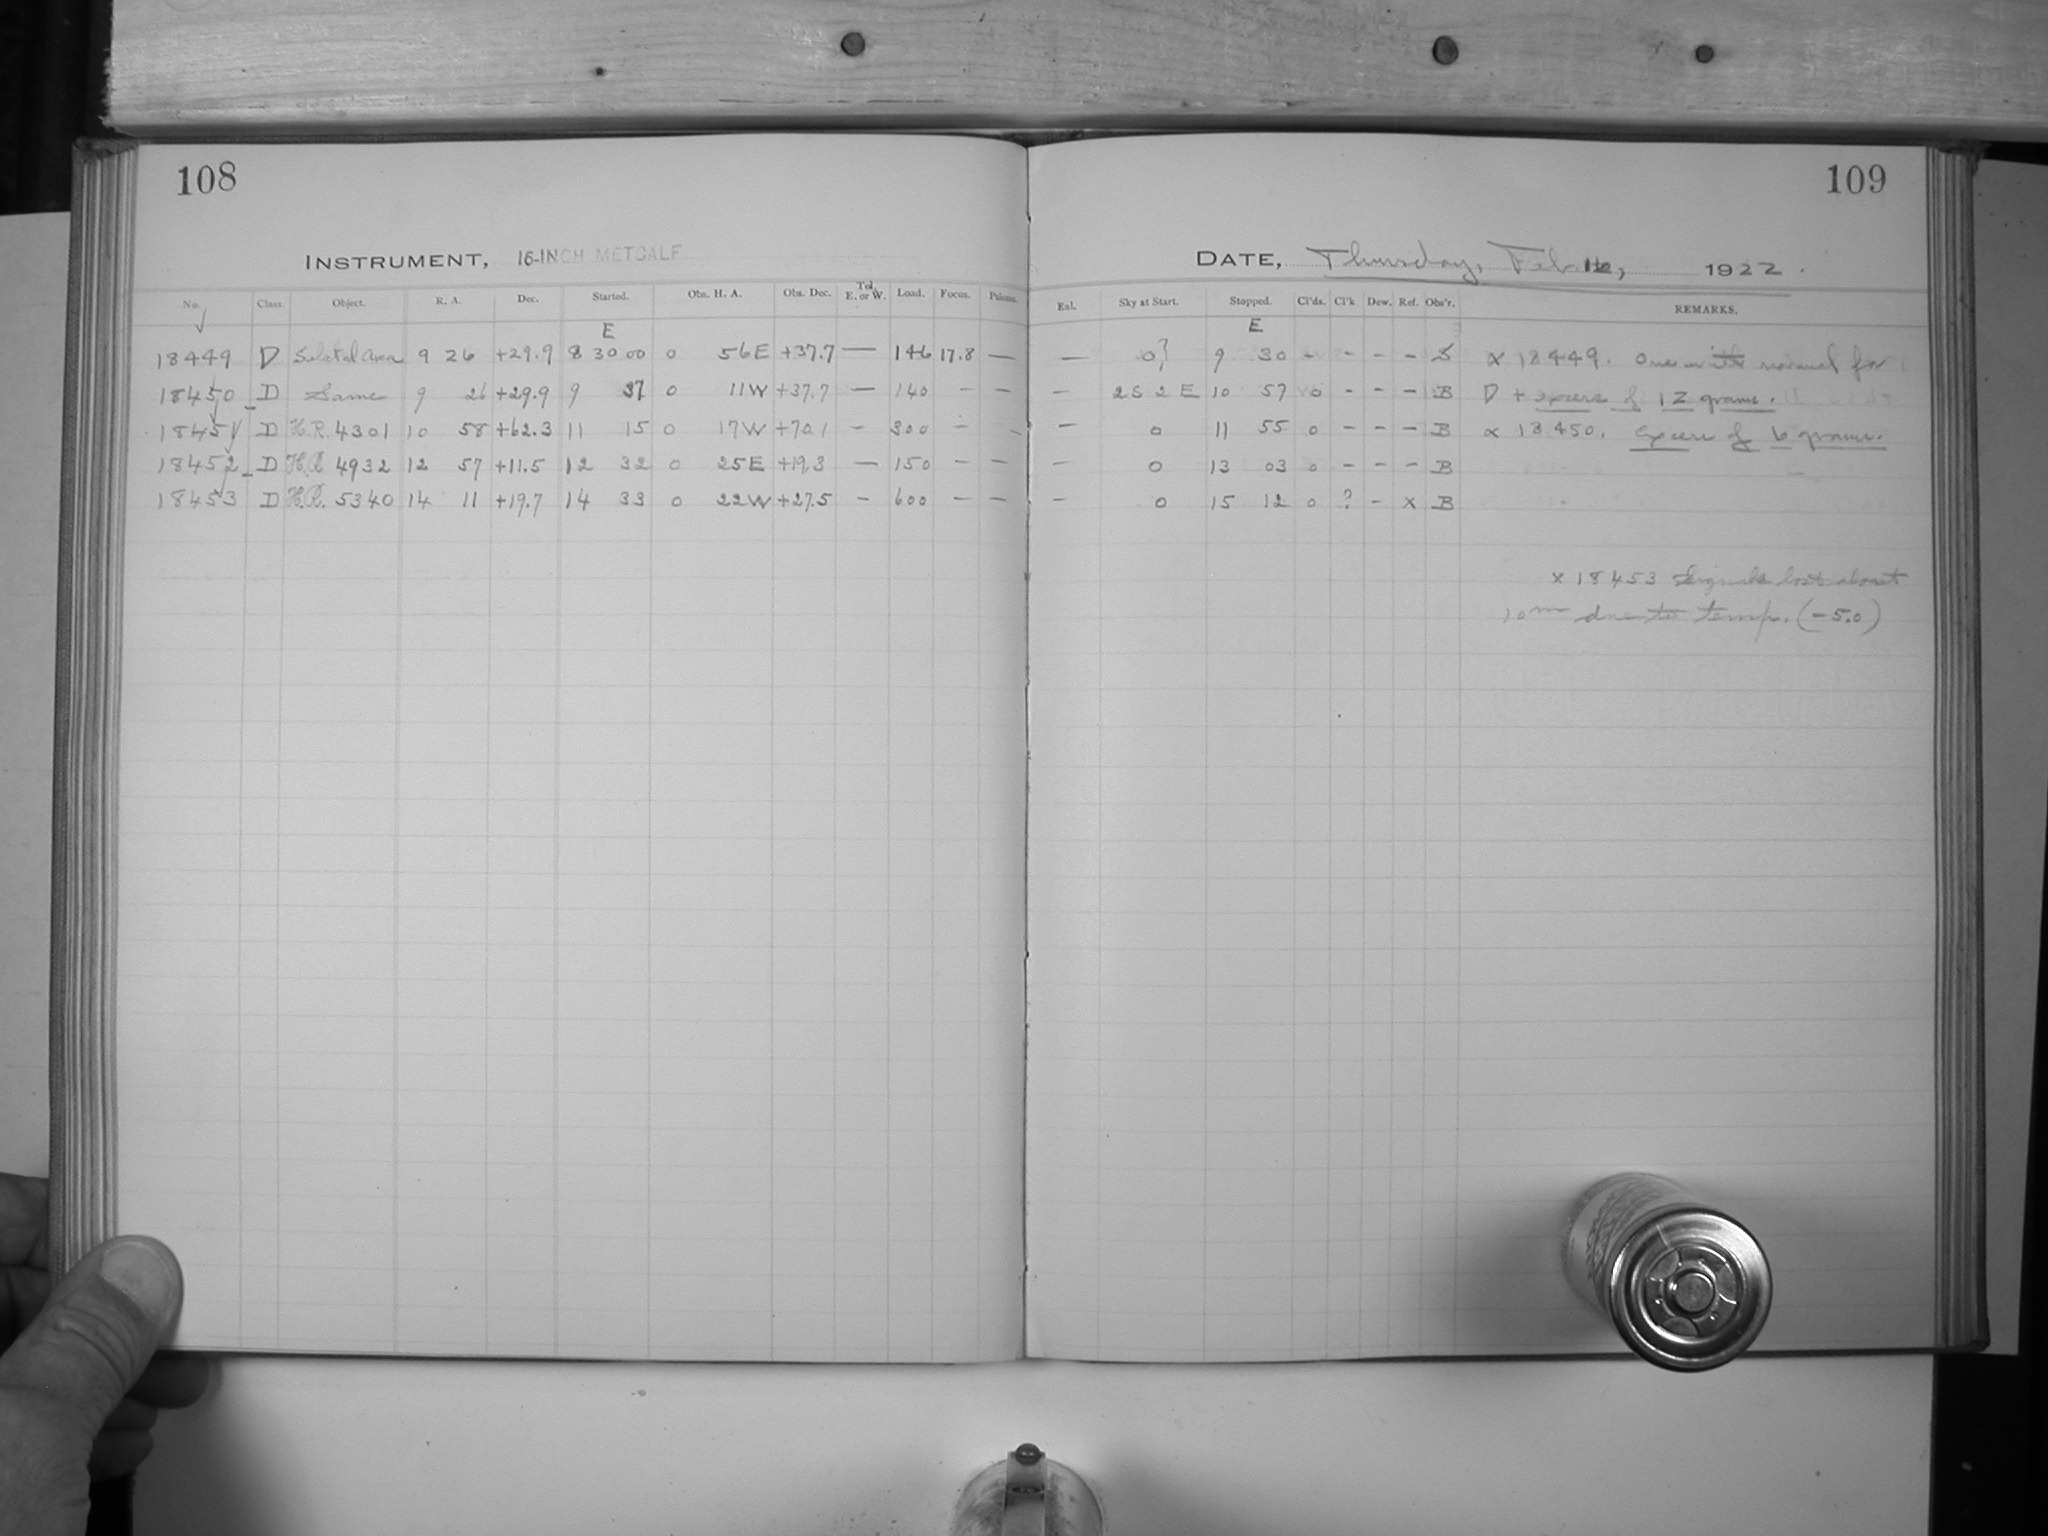 108
INSTRUMENT, 16-INCH METCALF
No. Class. Object. R. A. Dec. Started. Obs. H. A. Obs. Dec. Tel. E. or W. Load. Focus.
E
18449 D Selected Area 9 26 +29.9 8 30 00 0 56E +37.7 — 146 17.8 —
18450 D Same 9 26 +29.9 9 37 0 11W +37.7 — 140 – –
18451 D H.R. 4301 10 58 +62.3 11 15 0 17W +70.1 – 300 – –
18452 D H.R. 4932 12 57 +11.5 12 32 0 25E +19.3 — 150 – –
18453 D H.R. 5340 14 11 +19.7 14 33 0 22W +27.5 – 600 – –
109
DATE, Thursday, Feb. 16, 1922.
Enl. Sky at Start. Stopped. Cl'ds. Cl'k Dew. Ref. Obs'r. REMARKS.
E
— 0? 9 30 – – – – S x 18449. One with normal for
— 2S 2E 10 57 0 – – – B D + excess of 12 grams.
— 0 11 55 0 – – – B x 18450. Excess of 6 grams.
— 0 13 03 0 – – – B
— 0 15 12 0 ? – x B
x 18453 Signals lost about
10m due to temp. (–5.0)